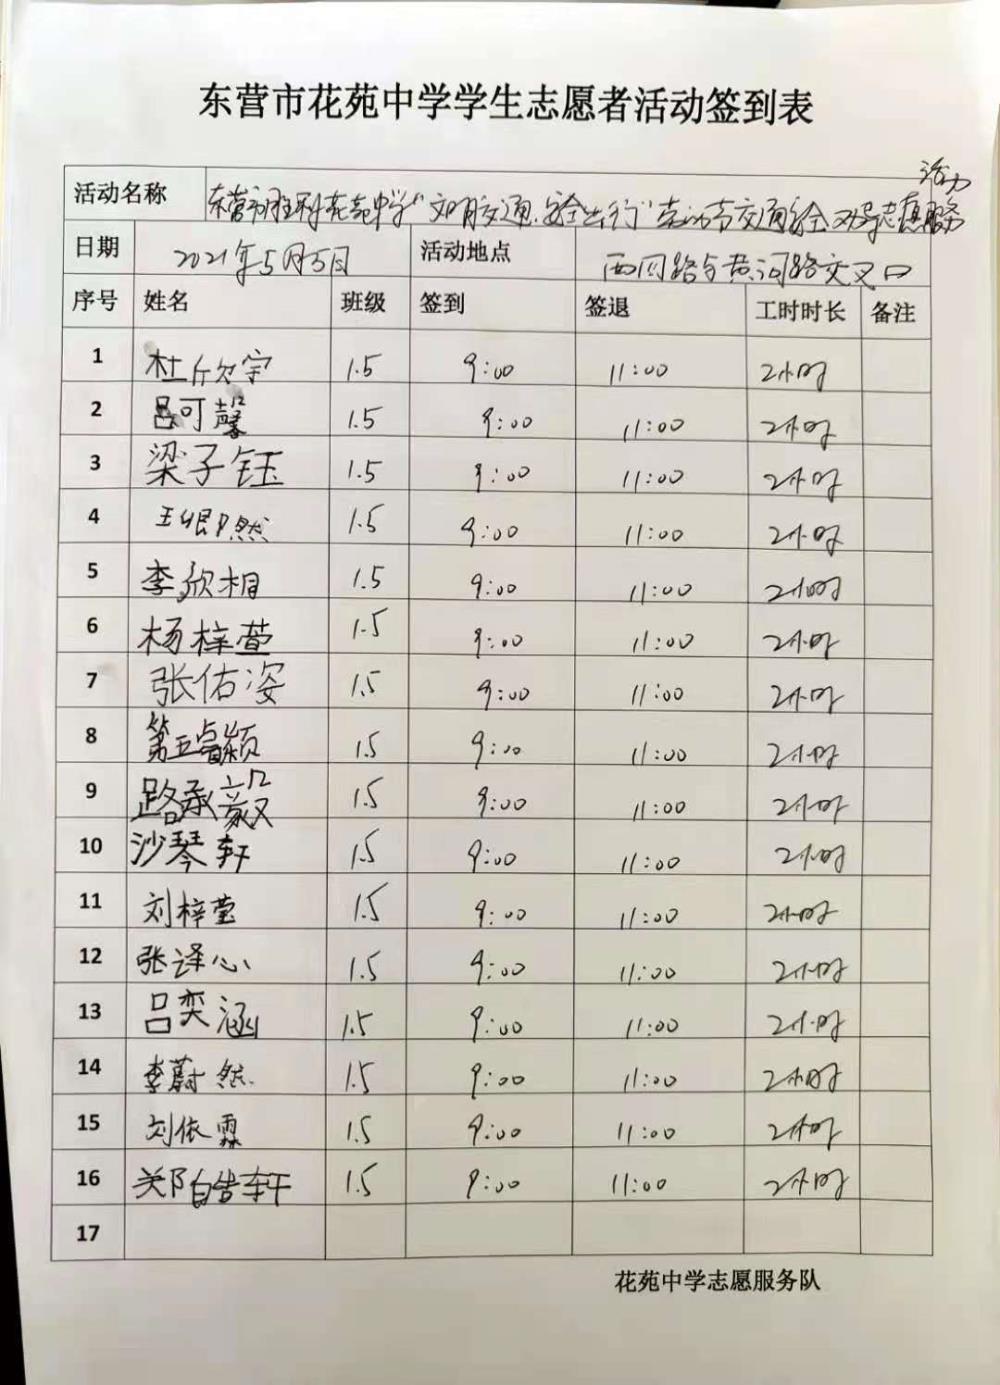 东营市花苑中学学生志愿者活动签到表
活动
活动名称 东营市胜利花苑中学“文明交通、安全出行”劳动节交通安全劝导志愿服务
日期 2021年5月5日 活动地点 西四路与黄河路交叉口
序号 姓名 班级 签到 签退 工时时长 备注
1 杜欣宇 1.5 9:00 11:00 2小时
2 吕可馨 1.5 9:00 11:00 2小时
3 梁子钰 1.5 9:00 11:00 2小时
4 1.5 9:00 11:00 2小时
5 李欣桐 1.5 9:00 11:00 2小时
6 杨梓萱 1.5 9:00 11:00 2小时
7 张佑姿 1.5 9:00 11:00 2小时
8 第五睿颖 1.5 9:00 11:00 2小时
9 路承毅 1.5 9:00 11:00 2小时
10 沙琴轩 1.5 9:00 11:00 2小时
11 刘梓莹 1.5 9:00 11:00 2小时
12 张译心 1.5 9:00 11:00 2小时
13 吕奕涵 1.5 9:00 11:00 2小时
14 李蔚然 1.5 9:00 11:00 2小时
15 刘依霖 1.5 9:00 11:00 2小时
16 郑皓轩 1.5 9:00 11:00 2小时
17
花苑中学志愿服务队